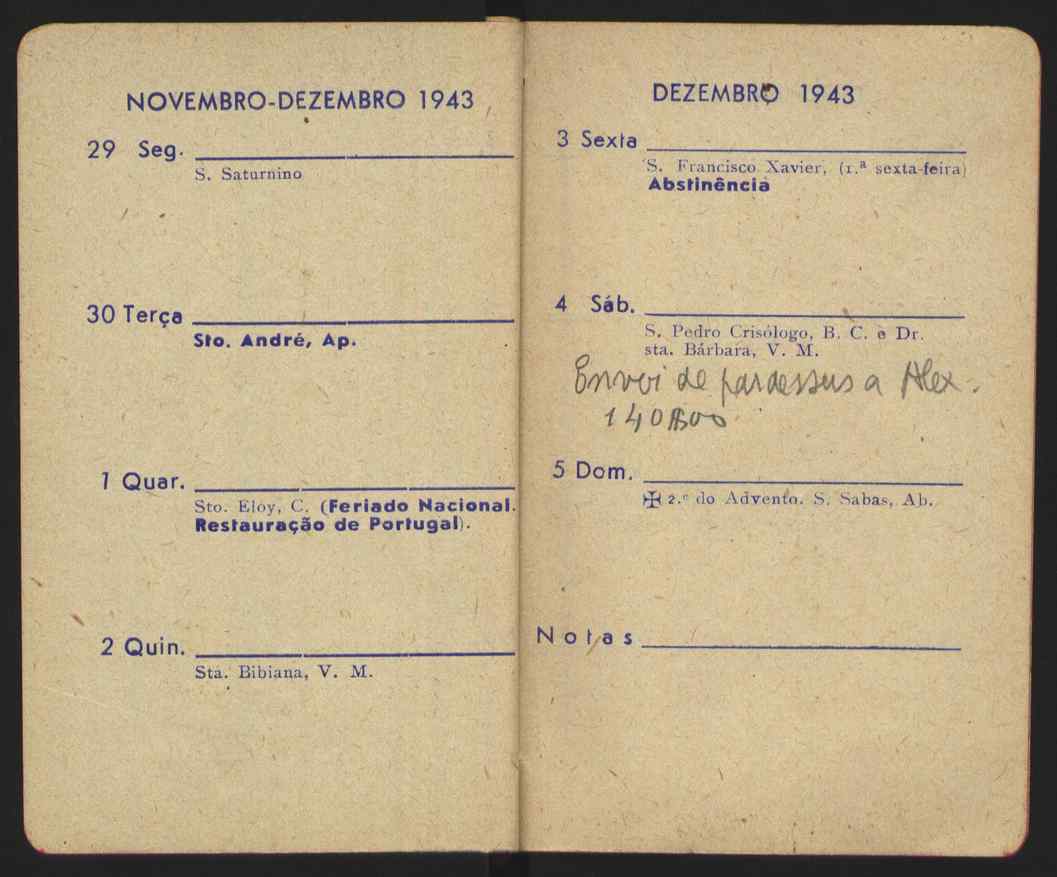 NOVEMBRO-DEZEMBRO 1943
29 Seg.
S. Saturnino
30 Terça
Sto. André, Ap.
1 Quar.
Sto. Eloy, C. (Feriado Nacional.
Restauração de Portugal).
2 Quin.
Sta. Bibiana, V. M.
DEZEMBRO 1943
3 Sexta
S. Francisco Xavier, (1.ª sexta-feira)
Abstinência
4 Sáb.
S. Pedro Crisólogo, B. C. e Dr.
sta. Bárbara, V. M.
Envoi de pardessus a Alex.
140$00
5 Dom.
✠ 2.º do Advento. S. Sabas, Ab.
Notas